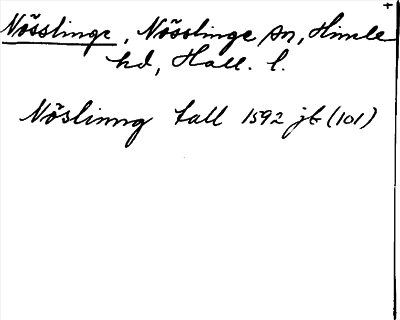 Nösslinge, Nösslinge sn, Himle
hd, Hall. l.
Nöslinng tall 1592 jb (101)